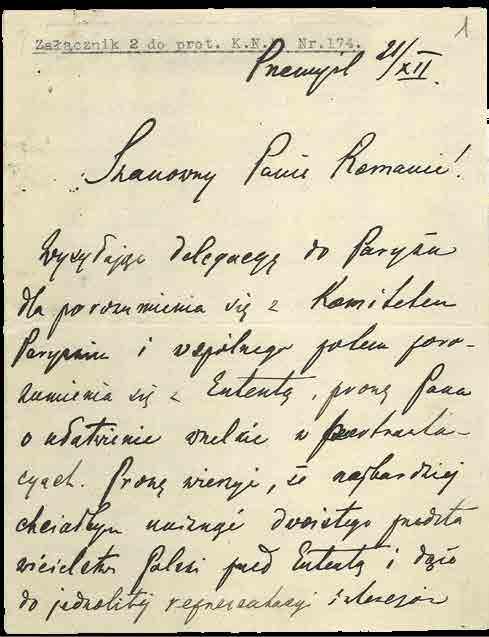 1
Załącznik 2 do prot. K.N.P. Nr.174.
Przemyśl 21/XII.
Szanowny Panie Romanie!
Wysyłając delegacyę do Paryża
dla porozumienia się z Komitetem
Paryskim i wspólnego potem poro-
zumienia się z Ententą, proszę Pana
o ułatwienie wszelkie w pertrakta-
cyach. Proszę wierzyć, że najbardziej
chciałbym uniknąć dwoistego przedsta
wicielstwa Polski przed Ententą i dążę
do jednolitej reprezentacyi interesów